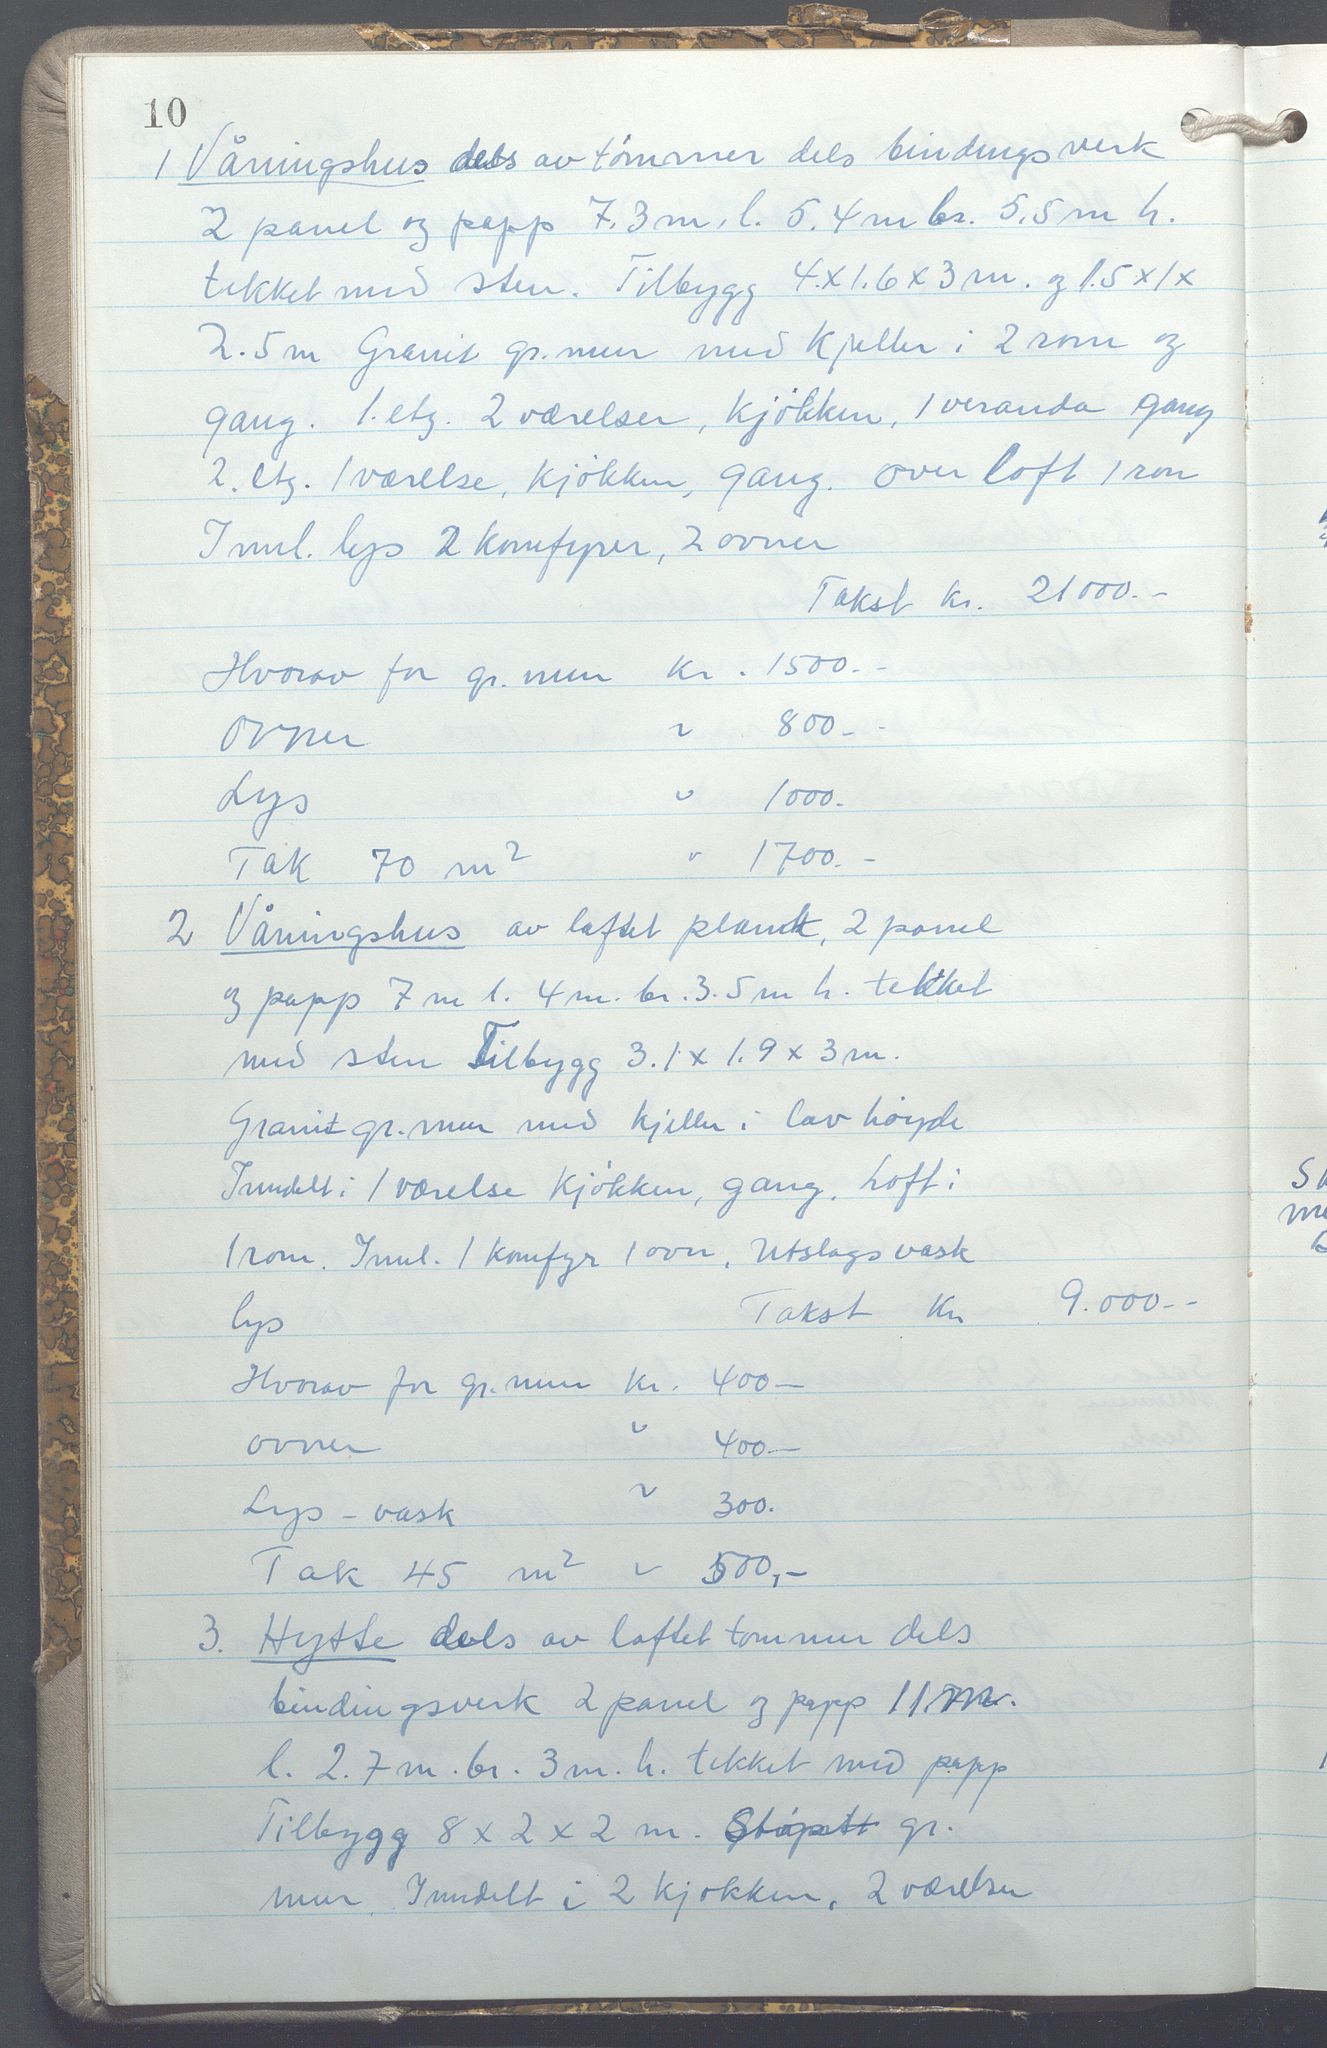 10
1 Våningshus dels av tömmer dels bindingsverk
2 panel og papp 7.3 m. l. 5.4 m br. 5.5 m h.
tekket med sten. Tilbygg 4.x1.6x3 m. og 1.5x1x
2.5 m Granit gr.mur med kjeller i 2 rom og
gang. 1. etg. 2 værelser, kjökken, 1 veranda gang
2. etg. 1 værelse, kjökken, gang. over loft 1 rom
Innl. lys 2 komfyrer, 2 ovner
Takst kr. 21000.-
Hvorav for gr. mur kr. 1500.-
Ovner " 800.-
Lys " 1000.
Tak 70 m² " 1700.-
2 Våningshus av laftet plank, 2 panel
og papp 7 m l. 4 m. br. 3.5 m h. tekket
med sten Tilbygg 3.1 x 1.9 x 3 m.
Granit gr. mur med kjeller i lav höyde
Inndelt i 1 værelse kjökken, gang. Loft i
1 rom. Innl. 1 komfyr 1 ovn, Utslagsvask
lys Takst Kr 9.000.-
Hvorav for gr. mur kr. 400-
ovner " 400-
Lys - vask " 300.
Tak 45 m² " 500,-
3. Hytte dels av laftet tömmer dels
bindingsverk 2 panel og papp 11 m.
l. 2.7 m. br. 3 m. h. tekket med papp
Tilbygg 8 x 2 x 2 m. Stöpt gr.
mur. Inndelt i 2 kjøkken, 2 værelser